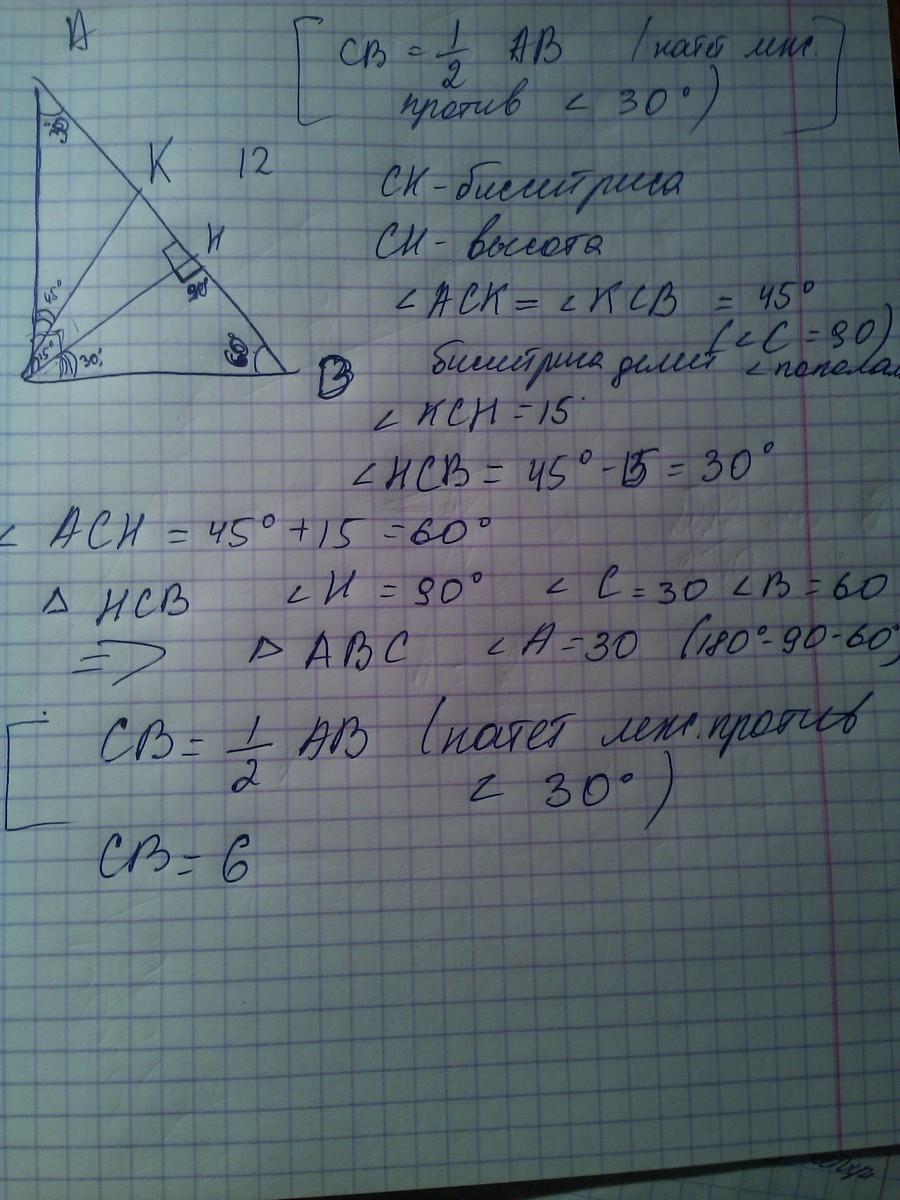 A
[ CB = 1/2 AB (катет леж.
против < 30° ) ]
30°
K 12
CK - биссетриса
H
CH - высота
90°
45°
< ACK = < KCB = 45°
(< C = 90)
15° 30° 60°
биссетриса делит < пополам
B
< KCH = 15°
< HCB = 45° - 15 = 30°
< ACH = 45° + 15 = 60°
△ HCB < H = 90° < C = 30 < B = 60
=> △ ABC < A = 30 (180° - 90 - 60°)
[ CB = 1/2 AB (катет леж. против
< 30° )
CB = 6